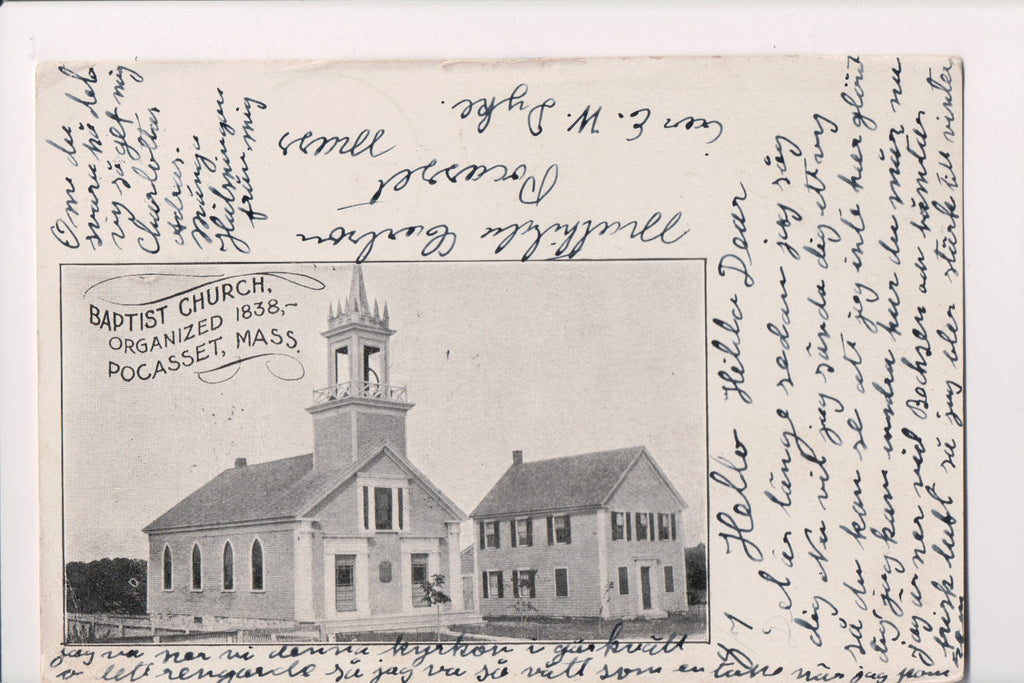 BAPTIST CHURCH,
ORGANIZED 1838,~
POCASSET, MASS.
Hello Hilda Dear
Det är länge sedan jag såg
dig Nu vil jag sända dig ett vy
så du kan se att jag inte har glömt
dig jag kan undra hur du mår nu
jag är ner vid Bachsen an hämtar
frisk luft så jag blir stark till vinter
jag va ner vi denna kyrkan i går kvält
o det rengarde så jag va så vått som en när jag kom
Om du
svara på det
vy så gif mig
Charlottas
Adras.
Många
Hälsningar
från mig
Mathilda Carlson
Pocasset
Mass
Care E. W. Dyke.